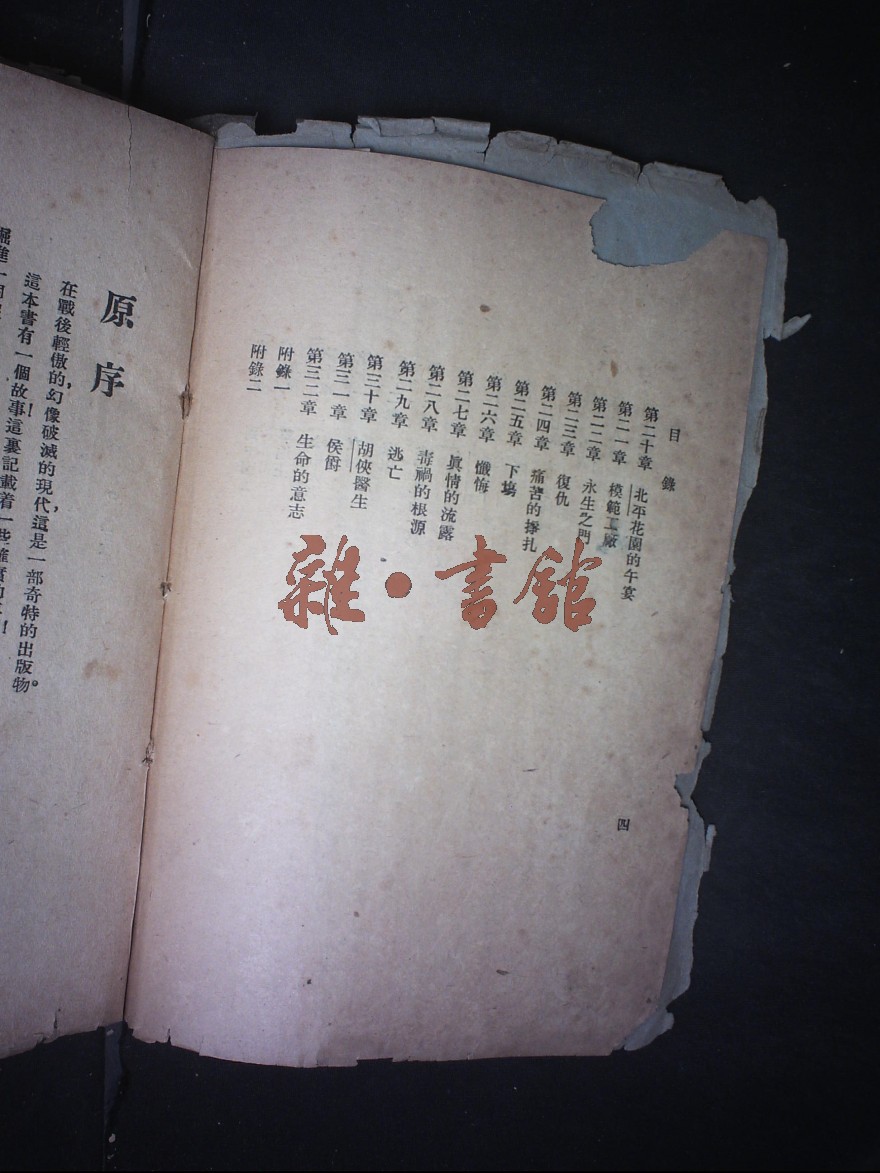 目錄
第二十章 北平花園的午宴
第二一章 模範工廠
第二二章 永生之門
第二三章 復仇
第二四章 痛苦的掙扎
第二五章 下塲
第二六章 懺悔
第二七章 眞情的流露
第二八章 毒禍的根源
第二九章 逃亡
第三十章 胡俠醫生
第三一章 侯爵
第三二章 生命的意志
附錄一
附錄二
四
雜·書館
原序
在戰後輕傲的幻像破滅的現代,這是一部奇特的出版物。
這本書有一個故事!這裏記載着一些確實的